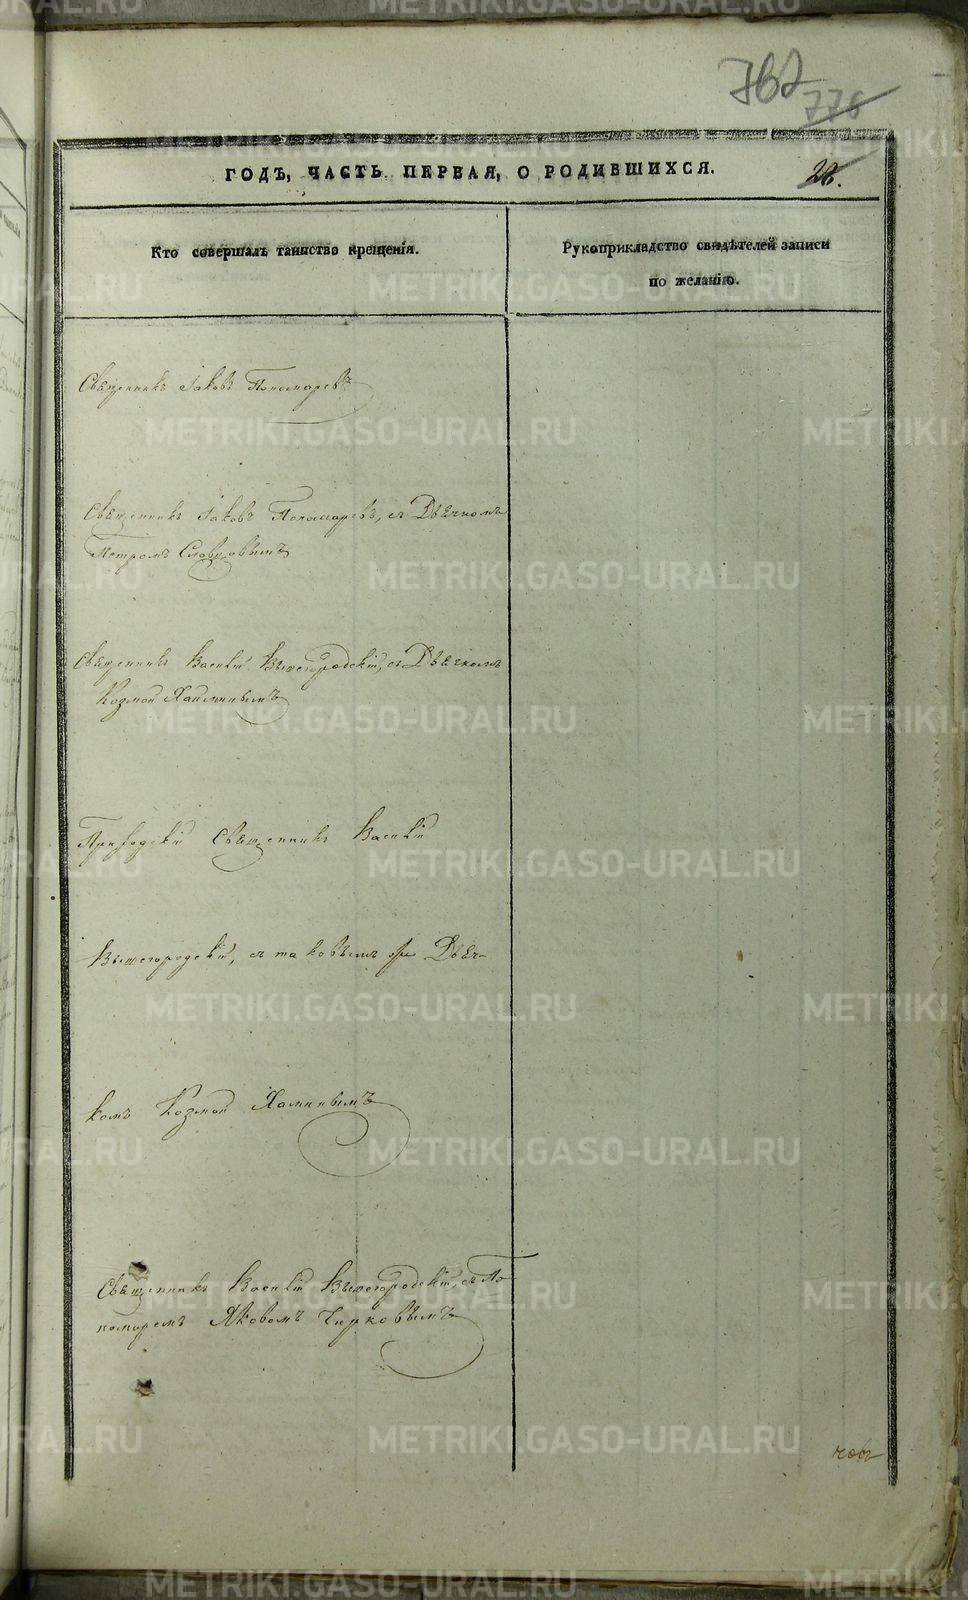 762
776
ГОДЪ, ЧАСТЬ ПЕРВАЯ, О РОДИВШИХСЯ.
28.
Кто совершалъ таинство крещенія.
Рукоприкладство свидѣтелей записи
по желанію.
Священникъ Іаковъ Пономаревъ
Священникъ Іаковъ Пономаревъ, съ Дьячкомъ
Петромъ Словцовымъ
Священникъ Василій Вышегородскій, съ Дьячкомъ
Козмой Хаминывымъ
Приходскій Священникъ Василій
Вышегородскій, съ таковымъ же Дьяч-
комъ Козмой Хаминывымъ
Священникъ Василій Вышегородскій, съ По
номаремъ Яковомъ Чирковымъ
METRIKI.GASO-URAL.RU